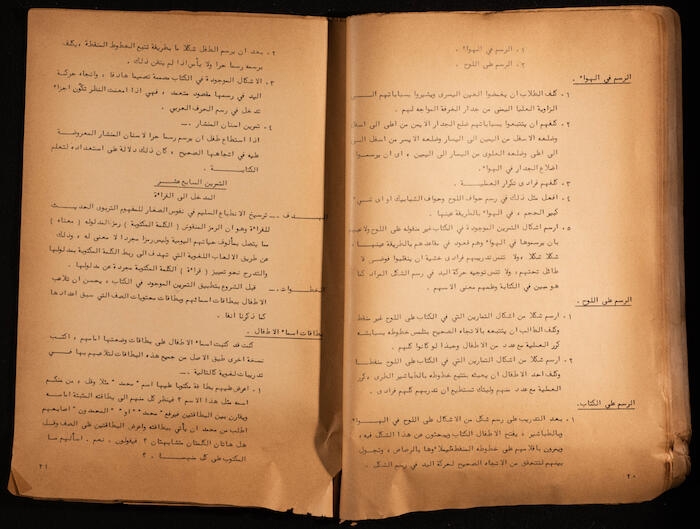 ١. الرسم في الهواء .
٢. الرسم على اللوح .
الرسم في الهواء .
١. كلف الطلاب ان يغمضوا العين اليسرى ويشيروا بسباباتهم الى
الزاوية العليا اليمنى من جدار الغرفة المواجه لهم .
٢. كلفهم ان يتتبعوا بسباباتهم ضلع الجدار الايمن من اعلى الى اسفل
وضلعه الاسفل من اليمين الى اليسار وضلعه الايسر من اسفل الى
الى اعلى وضلعه العلوى من اليسار الى اليمين ، اى ان يرسموا
اضلاع الجدار في الهواء .
٣. كلفهم فرادى تكرار العملية .
٤. افعل مثل ذلك في رسم حواف اللوح وحواف الشبابيك او اى شيء
كبير الحجم ، في الهواء بالطريقة عينها .
٥. ارسم اشكال التمرين الموجودة في الكتاب غير منقوله على اللوح ولا
بان يرسموها في الهواء وهم قعود في مقاعدهم بالطريقة عينها ،
شكلا شكلا ، ولا تنس تدريبهم فرادى خشية ان ينقلبوا فوضى لا
طائل تحتهم ، ولا تنس توجيه حركة اليد في رسم الشكل المراد كما
هو مبين في الكتابة وطمهم معنى الاسهم .
الرسم على اللوح .
١. ارسم شكلا من اشكال التمارين التي في الكتاب على اللوح غير منقط
وكلف الطالب ان يتتبعه بالاتجاه الصحيح يتلمس خطوطه بسبابته
كرر العملية مع عدد من الاطفال وحبذا لو كانوا كلهم .
٢. ارسم شكلا من اشكال التمارين التي في الكتاب على اللوح منقطا
وكلف احد الاطفال ان يحيئه بتتبع خطوطه بالطباشير الطرى ، كرر
العملية مع عدد منهم وليتك تستطيع ان تدريبهم كلهم فرادى .
الرسم على الكتاب .
١. بعد التدريب على رسم شكل من الاشكال على اللوح في الهواء
وبالطباشير ، يفتح الاطفال الكتاب ويبحثون عن هذا الشكل فيه ،
ويمرون باقلامهم على خطوطه المنقطة بالرصاص ، وتجول
بينهم لتتحقق من الاتجاه الصحيح لحركة اليد في رسم الشكل .
٢٠
٢. بعد ان يرسم الطفل شكلا ما بطريقة تتبع الخطوط المنقطة ، يكلف
برسمه رسما حرا ولا بأس اذا لم يتقن ذلك .
٣. الاشكال الموجودة في الكتاب مصممة تصميما هادفا ، واتجاه حركة
اليد في رسمها مقصود متعمد ، فهي اذا امعنت النظر تكوّن اجزاء
تدخل في رسم الحرف العربي .
٤. تمرين اسنان المنشار ــ
اذا استطاع طفل ان يرسم رسما حرا لاسنان المنشار المعروضة
عليه في اتجاهها الصحيح ، كان ذلك دلالة على استعداده لتعلم
الكتابة .
التمرين السابع عشر
المدخل الى القراءة
الهدف ــ ترسيخ الانطباع السليم في نفوس الصغار للمفهوم التربوى الحديث
للقراءة وهو ان الرمز المنقوش ( الكلمة المكتوبة ) رمز المدلوله ( معناه )
مما يتصل بمألوف حياتهم اليومية وليس رمزا مجردا لا معنى له ، وذلك
عن طريق الالعاب اللغوية التي تهدف الى ربط الكلمة المكتوبة بمدلولها
والتدرج نحو تمييز ( قراءة ) الكلمة المكتوبة مجردة عن مدلولها .
الخطوات ــ قبل الشروع بتطبيق التمرين الموجود في الكتاب ، يحسن ان تلاعب
الاطفال ببطاقات اسمائهم وبطاقات محتويات الصف التي سبق اعدادها
كما ذكرنا آنفا .
بطاقات اسماء الاطفال .
كنت قد كتبت اسماء الاطفال على بطاقات وضعتها امامهم ، اكتب
نسخة اخرى طبق الاصل من جميع هذه البطاقات لتلاعبهم بها في
تدريبات لغوية كالتالية ــ
١. اعرض عليهم بطاقة مكتوبا عليها اسم " محمد " مثلا وقل ، من منكم
اسمه مثل هذا الاسم ؟ فينظر كل منهم الى بطاقته المثبتة امامه
ويقارن بين البطاقتين فيرفع " محمد " او " المحمدون " اصابعهم
اطلب من محمد ان يأتي ببطاقته واعرض البطاقتين على الصف وقل
هل هاتان الكلمتان متشابهتان ؟ فيقولون . نعم . اسألهم ما
المكتوب على كل منهما . ؟
٢١